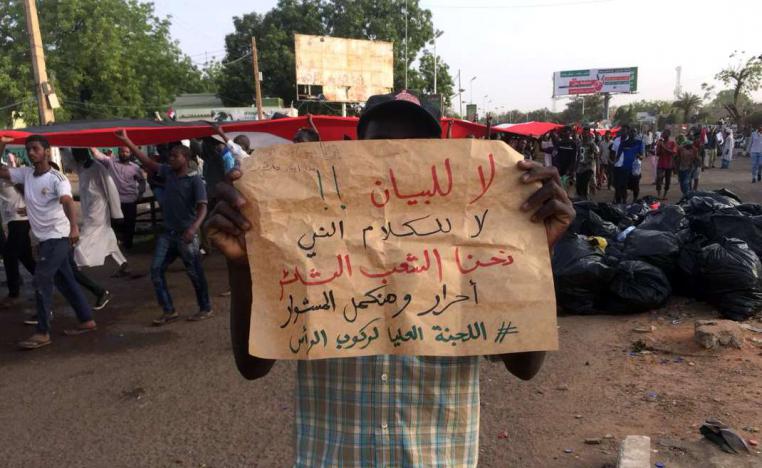 لا للبيان !!
لا للكلام الني
نحنا الشعب الثائر
أحرار ومنكمل المشوار
# اللجنة العليا لركوب الرأس